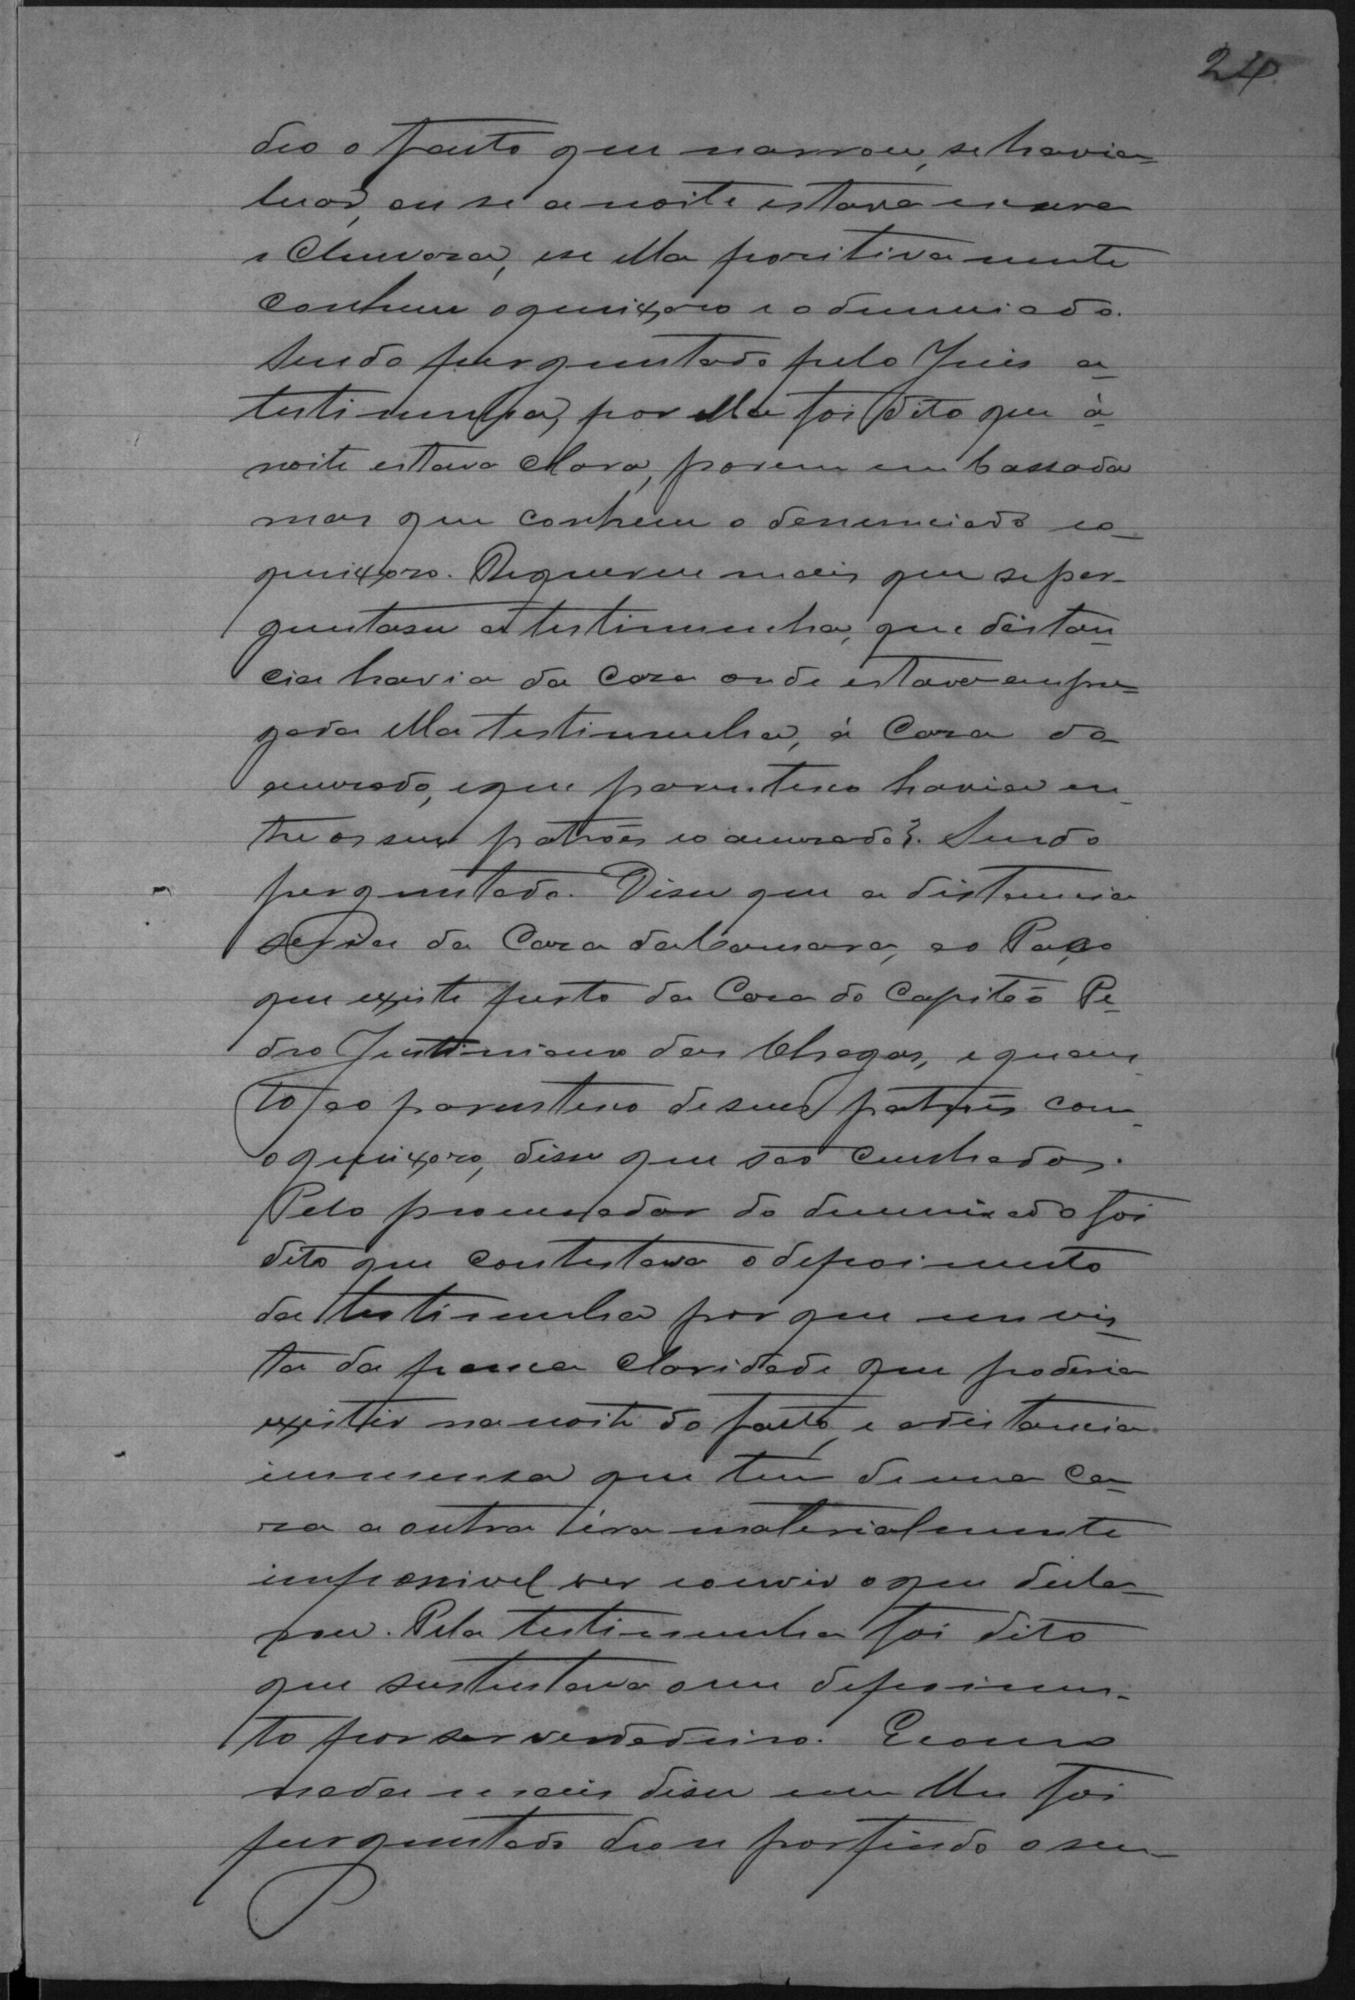 24
deo o facto que narrou, se havia
luar, ou se a noite estava escura
e chuvosa, e se ella positivamente
conhece o queixoso e o denunciado.
Sendo perguntado pelo Juis a
testimunha, por ella foi dito que á
noite estava clara, porem embassada
mas que conhece o denunciado e o
queixoso. Requereu mais que se per-
guntasse a testimunha, que distan
cia havia da casa onde estava empre-
gada ella testimunha, á casa do
accusado, e que parentesco havia en-
tre os seus patrões e o accusado?. Sendo
perguntado. Disse que a distancia
seria da Caza da Camara, ao Passo
que existe perto da Casa do Capitão Pe-
dro Justiniano das Chagas, e quan-
to ao parentesco de seus patrões com
o queixoso, disse que são cunhados.
Pelo procurador do denunciado foi
dito que contestava o depoimento
da testimunha por que em vis-
ta da pouca claridade que poderia
existir na noite do facto, e a distancia
immensa que tem de uma ca-
za a outra éra materialmente
impossivel ver e ouvir o que decla-
rou. Pela testimunha foi dito
que sustentava o seu depoimen-
to por ser verdadeiro. E como
nada mais disse nem lhe foi
perguntado deo-se por findo o seu